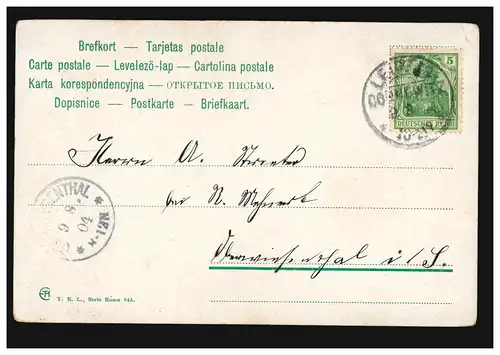 Brefkort — Tarjetas postale
Carte postale — Levelező-lap — Cartolina postale
Karta korespondencyjna — ОТКРЫТОЕ ПИСЬМО.
Dopisnice — Postkarte — Briefkaart.
5
DEUTSCHES REICH
LEIPZIG
Herrn A. Streuter
bei N. Mehnert
Oberwiesenthal i/S.
ENTHAL
T. E. L., Serie Roma 845.